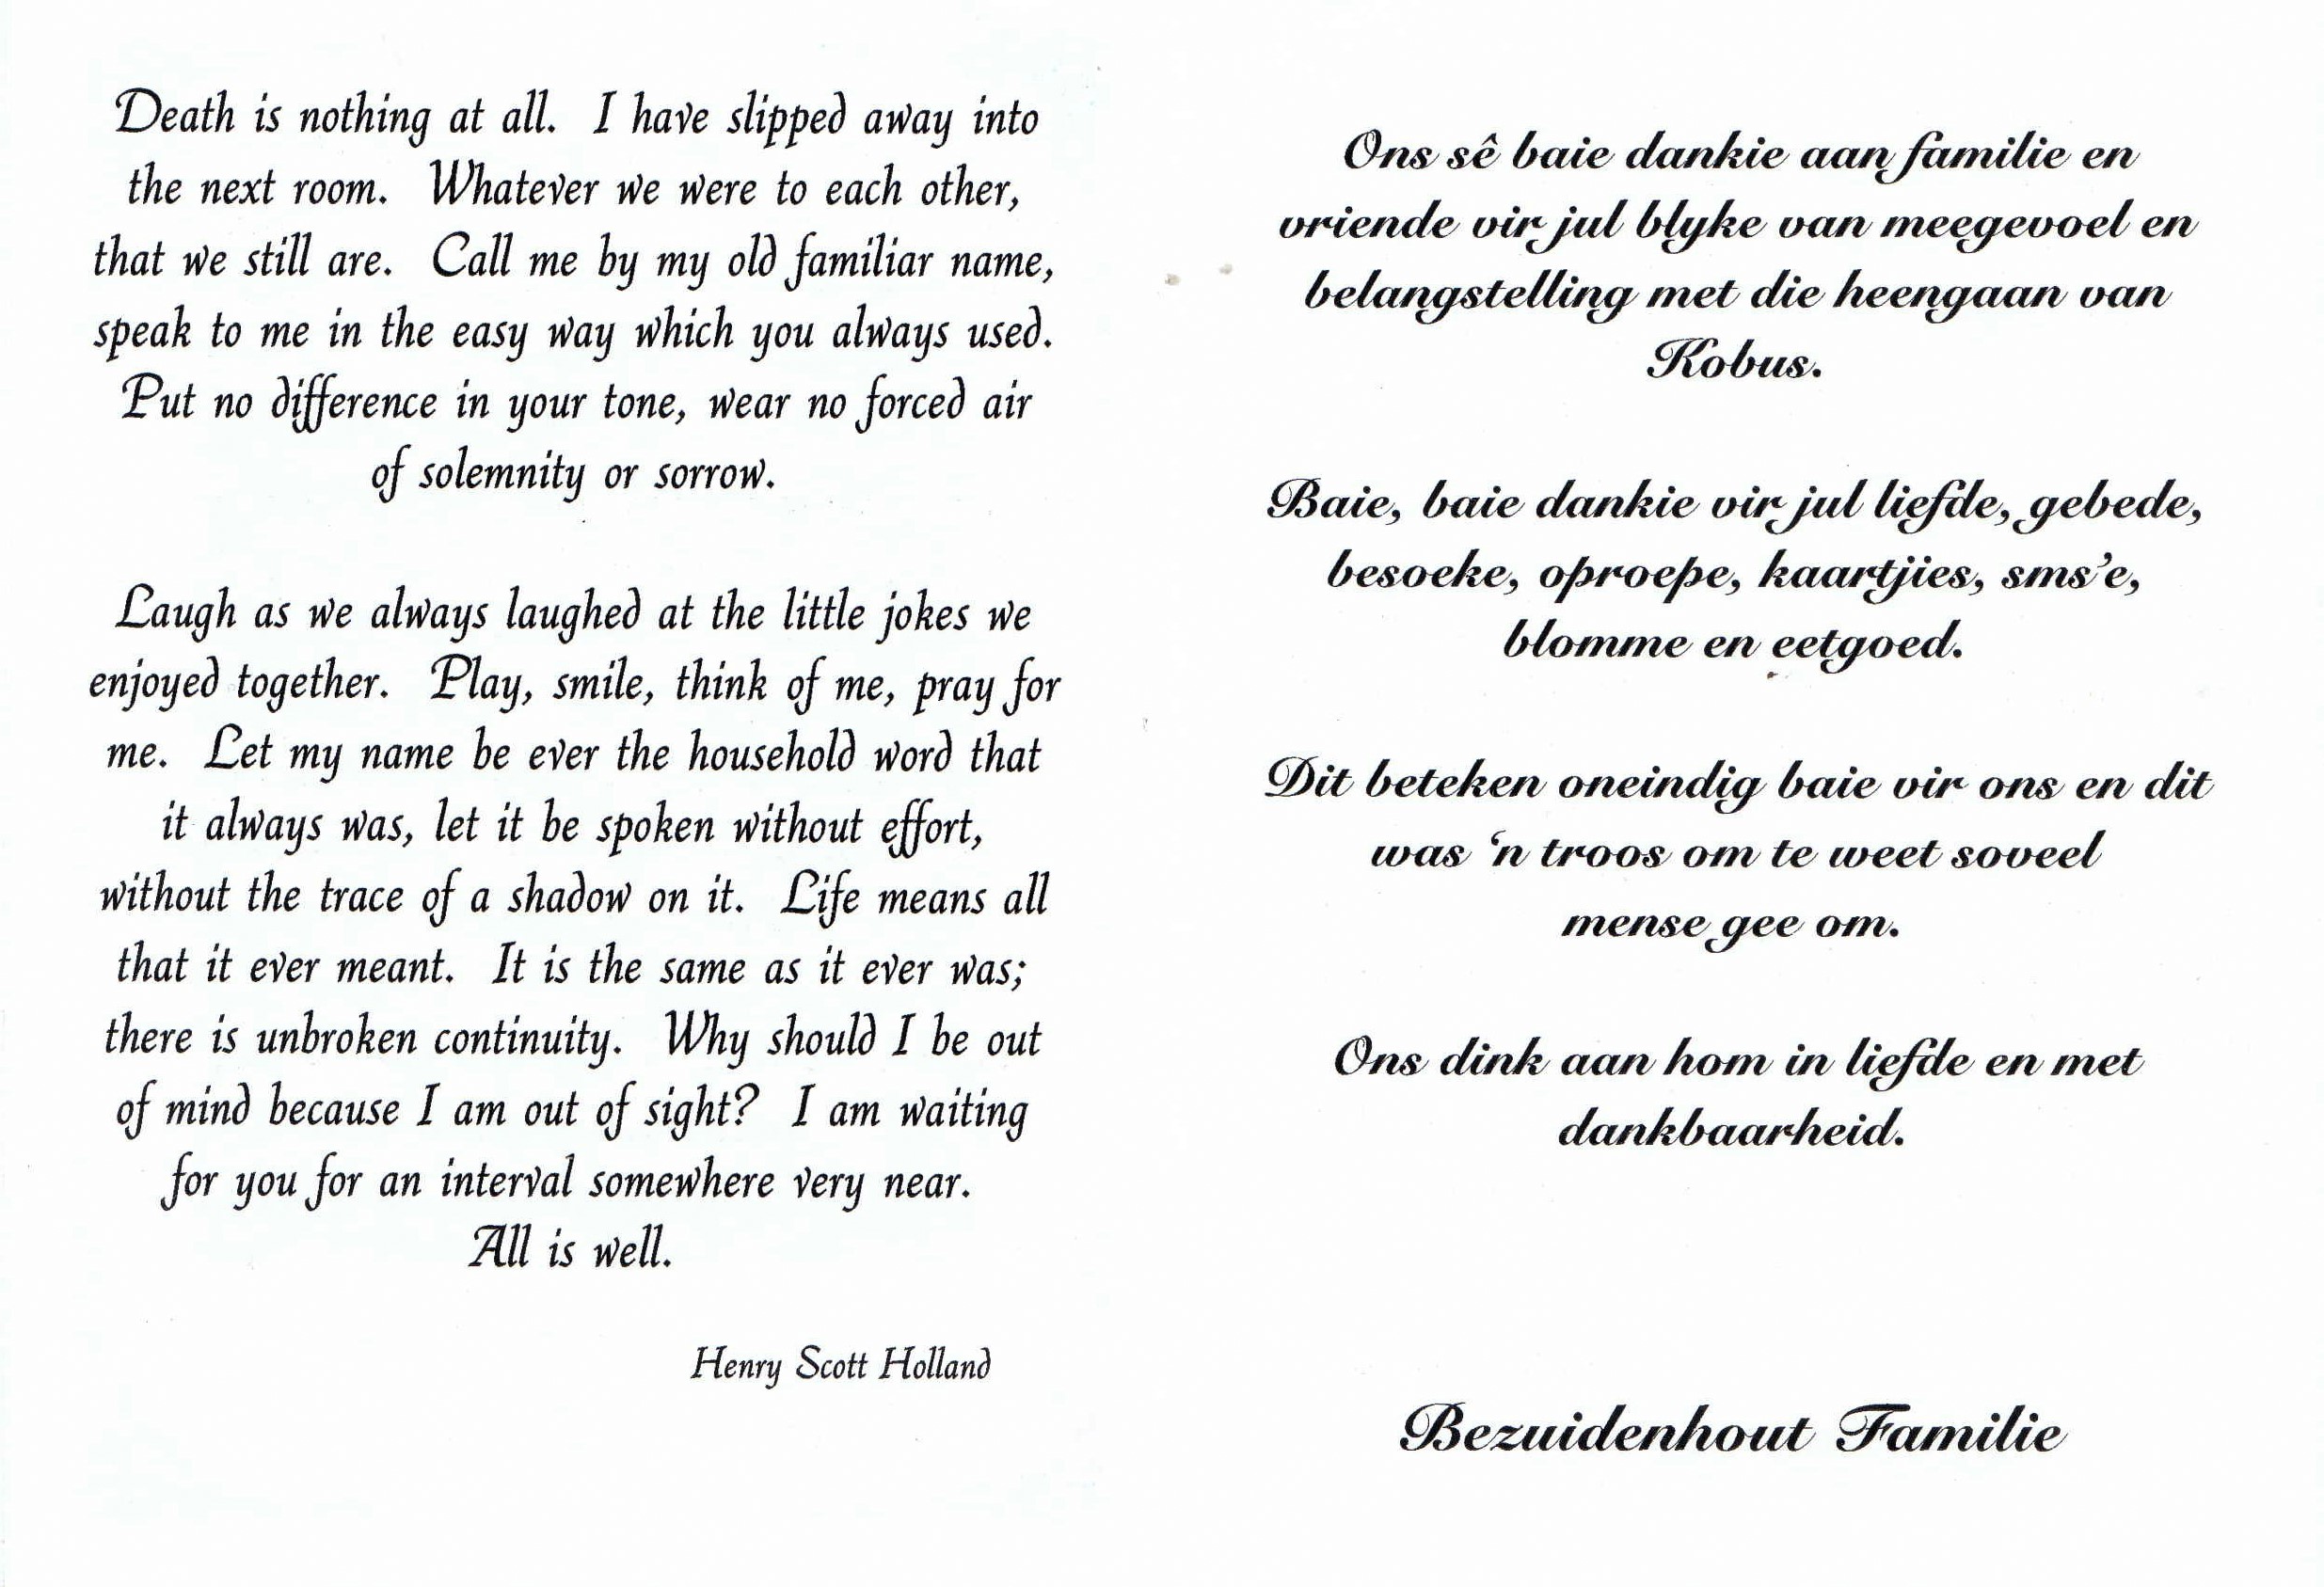 Death is nothing at all. I have slipped away into
the next room. Whatever we were to each other,
that we still are. Call me by my old familiar name,
speak to me in the easy way which you always used.
Put no difference in your tone, wear no forced air
of solemnity or sorrow.
Laugh as we always laughed at the little jokes we
enjoyed together. Play, smile, think of me, pray for
me. Let my name be ever the household word that
it always was, let it be spoken without effort,
without the trace of a shadow on it. Life means all
that it ever meant. It is the same as it ever was;
there is unbroken continuity. Why should I be out
of mind because I am out of sight? I am waiting
for you for an interval somewhere very near.
All is well.
Henry Scott Holland
Ons sê baie dankie aan familie en
vriende vir jul blyke van meegevoel en
belangstelling met die heengaan van
Kobus.
Baie, baie dankie vir jul liefde, gebede,
besoeke, oproepe, kaartjies, sms’e,
blomme en eetgoed.
Dit beteken oneindig baie vir ons en dit
was ‘n troos om te weet soveel
mense gee om.
Ons dink aan hom in liefde en met
dankbaarheid.
Bezuidenhout Familie